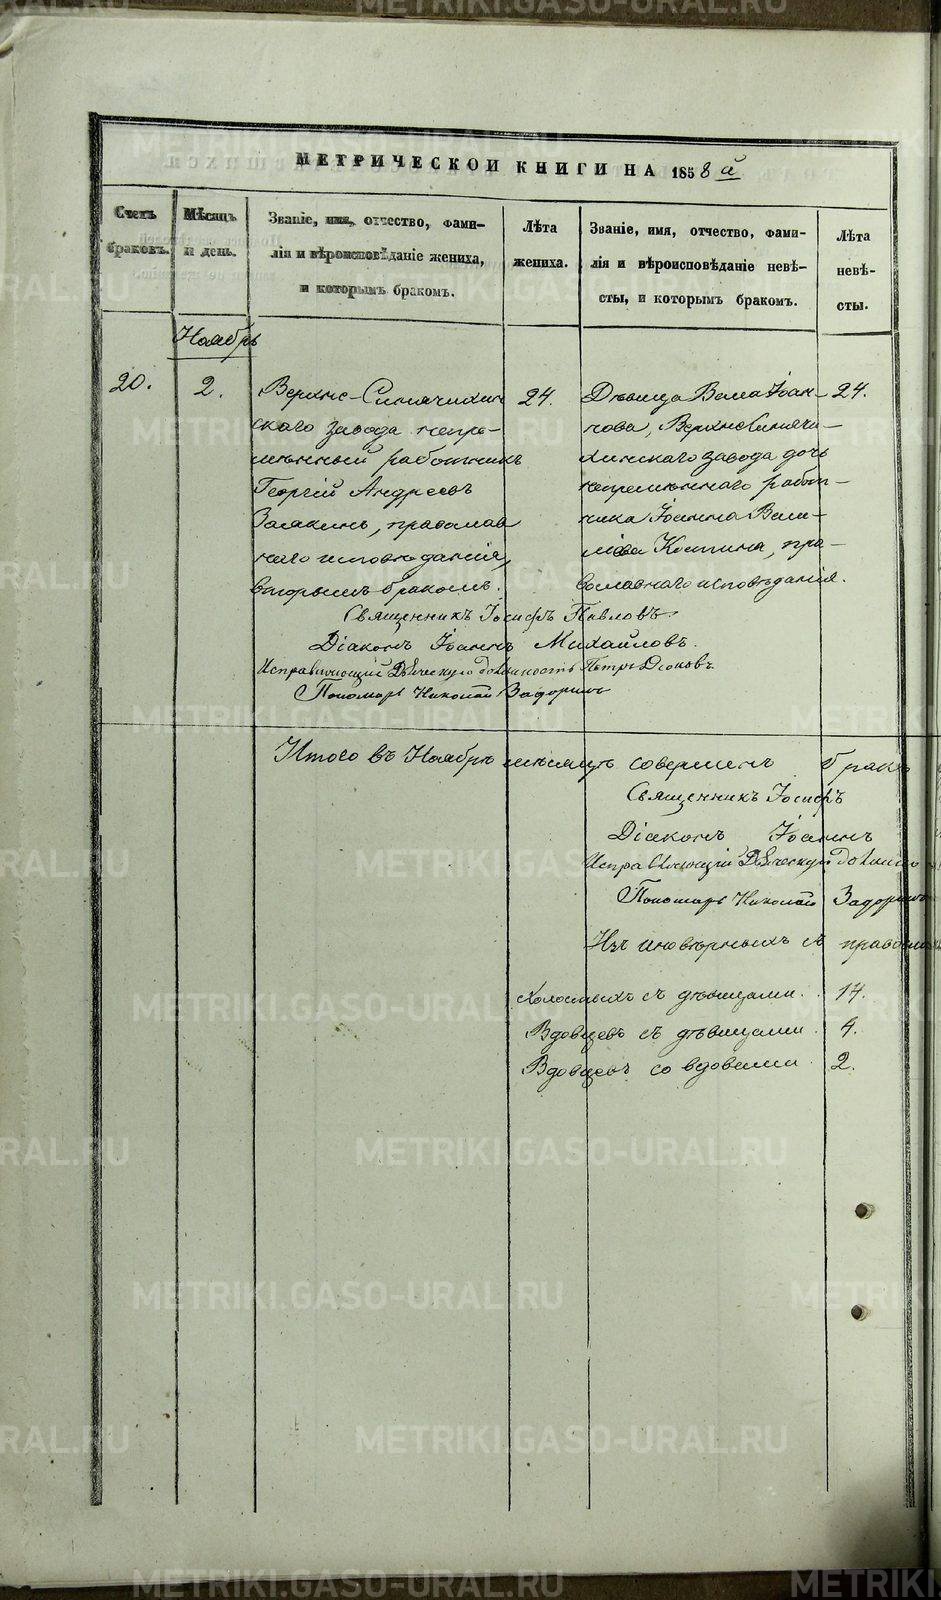 МЕТРИЧЕСКОЙ КНИГИ НА 1858 й
Счетъ браковъ.
Мѣсяцъ и день.
Званіе, имя, отчество, фами-
лія и вѣроисповѣданіе жениха,
и которымъ бракомъ.
Лѣта
жениха.
Званіе, имя, отчество, фами-
лія и вѣроисповѣданіе невѣ-
сты, и которымъ бракомъ.
Лѣта
невѣ-
сты.
Ноябрь
20.
2.
Верхне-Синячихин
скаго завода непре-
мѣнный работникъ
Георгій Андреевъ
православ
наго исповѣданія,
вторымъ бракомъ.
24.
Дѣвица Іоан-
нова, Верхнесинячи-
хинскаго завода дочь
непремѣннаго работ-
ника Іоанна
Костина, пра-
вославнаго исповѣданія.
24.
Священникъ Іосифъ Павловъ.
Діаконъ Іоаннъ Михайловъ.
Исправляющій Дьяческую должность Петръ
Пономарь Николай Задоринъ
Итого въ Ноябрѣ мѣсяцѣ совершенъ бракъ
Священникъ Іосифъ
Діаконъ Іоаннъ
Исправляющій Дьяческую должность
Пономарь Николай Задоринъ
Изъ иновѣрныхъ съ
Холостыхъ съ дѣвицами. 14.
Вдовцевъ съ дѣвицами. 4.
Вдовцевъ со вдовами 2.
METRIKI.GASO-URAL.RU